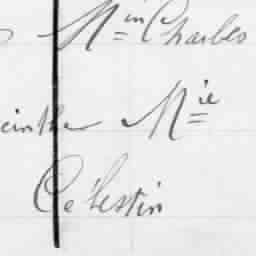 Min Charles
cinthe Mie
Célestin